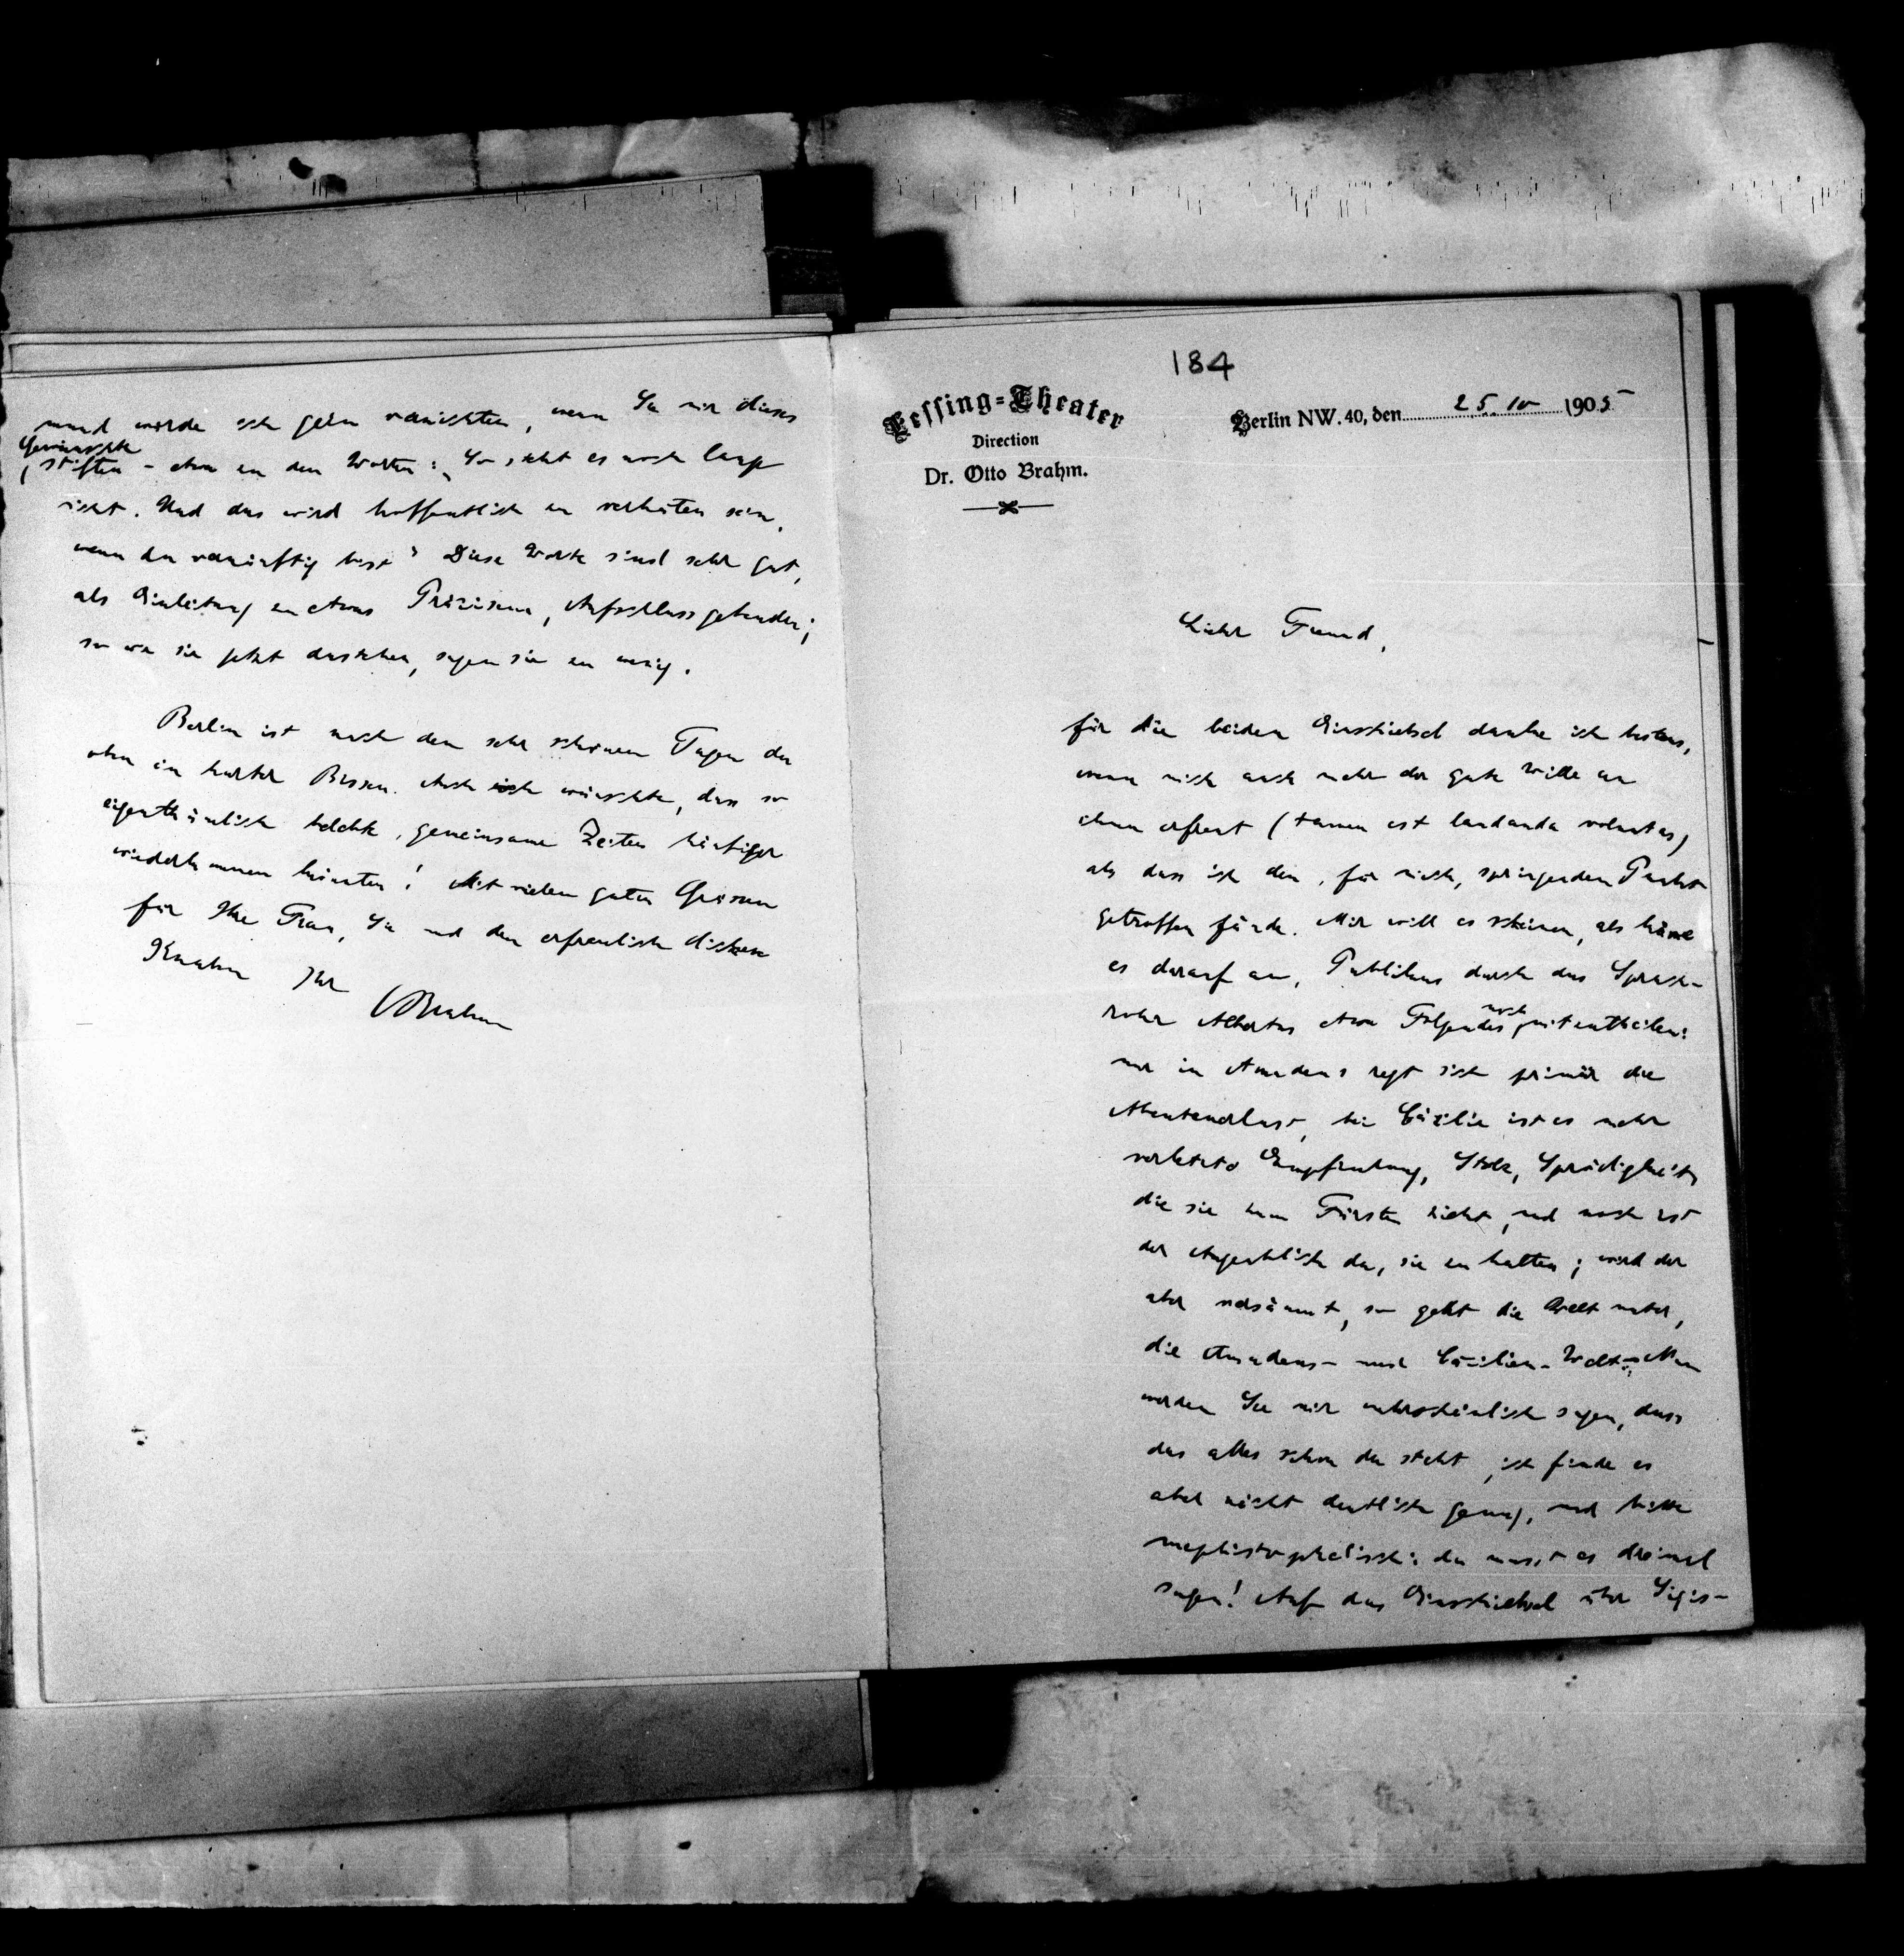 184
Lessing-Theater
Direction
Dr. Otto Brahm.
Berlin NW. 40, den 25. 10 1905
Lieber Freund,
für die beiden Einschiebsel danke ich bestens,
wenn mich auch mehr der gute Wille an
ihnen erfreut (tamen est laudanda voluntas)
als dass ich den, für mich, springenden Punkt
getroffen fände. Mir will es scheinen, als käme
es darauf an, Publikus durch das Sprach-
rohr Albertus etwa Folgendes noch mitzutheilen:
nur in Amadeus regt sich primär die
Abenteuerlust, bei Cäcilie ist es mehr
verletzte Empfindung, Stolz, Sprödigkeit,
die sie zum Fürsten zieht, und noch ist
der Augenblick da, sie zu halten; wird der
aber versäumt, so geht die Welt unter,
die Amadeus- und Cäcilien-Welt. Nun
werden Sie mir wahrscheinlich sagen, dass
das alles schon da steht, ich finde es
aber nicht deutlich genug, und bitte
mephistophelisch: du musst es dreimal
sagen! Auf das Einschiebsel über Sigis-
mund würde ich gern verzichten, wenn Sie mir dieses
Gewünschte
stiften - etwa zu den Worten: „So steht es noch lange
nicht. Und das wird hoffentlich zu verhüten sein,
wenn du vernünftig bist" Diese Worte sind sehr gut,
als Einleitung zu etwas Präzisem, Aufschlussgebenden;
so wie sie jetzt dastehen, sagen sie zu wenig.
Berlin ist nach den sehr schönen Tagen da
oben ein harter Bissen. Auch ich wünschte, dass so
eigenthümlich belebte, gemeinsame Zeiten häufiger
wiederkommen könnten! Mit vielen guten Grüssen
für Ihre Frau, Sie und den erfreulich dicken
Knaben Ihr
OBrahm